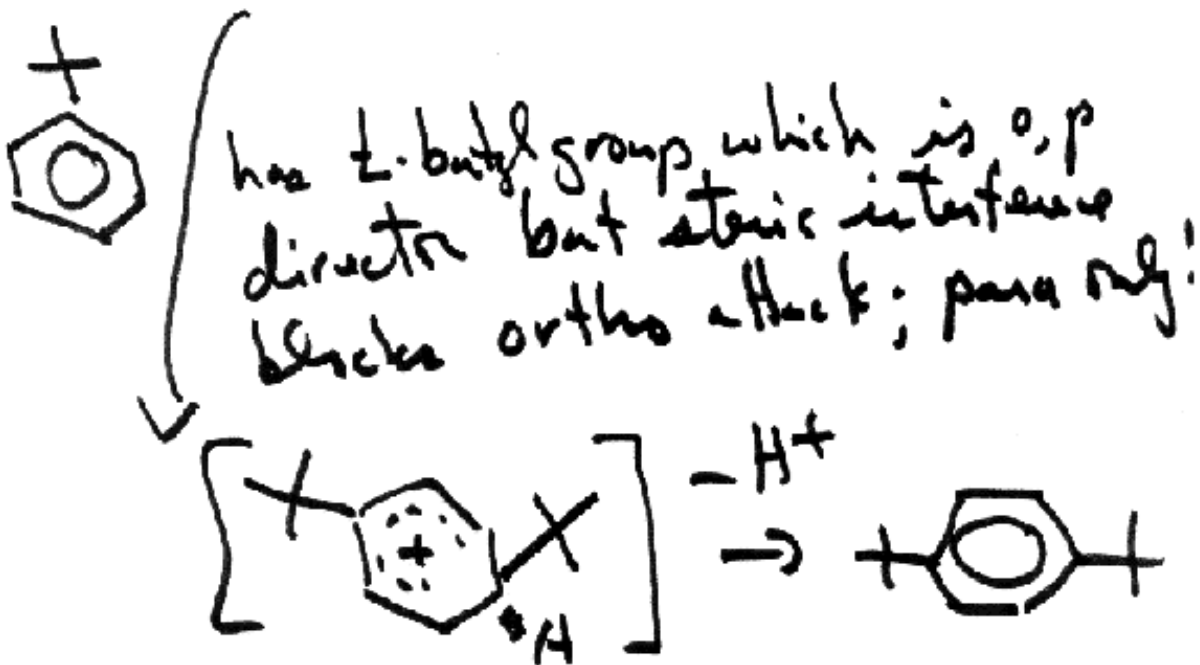 has t-butyl group which is o,p
director but steric interference
blocks ortho attack; para only!
- H+
+
H